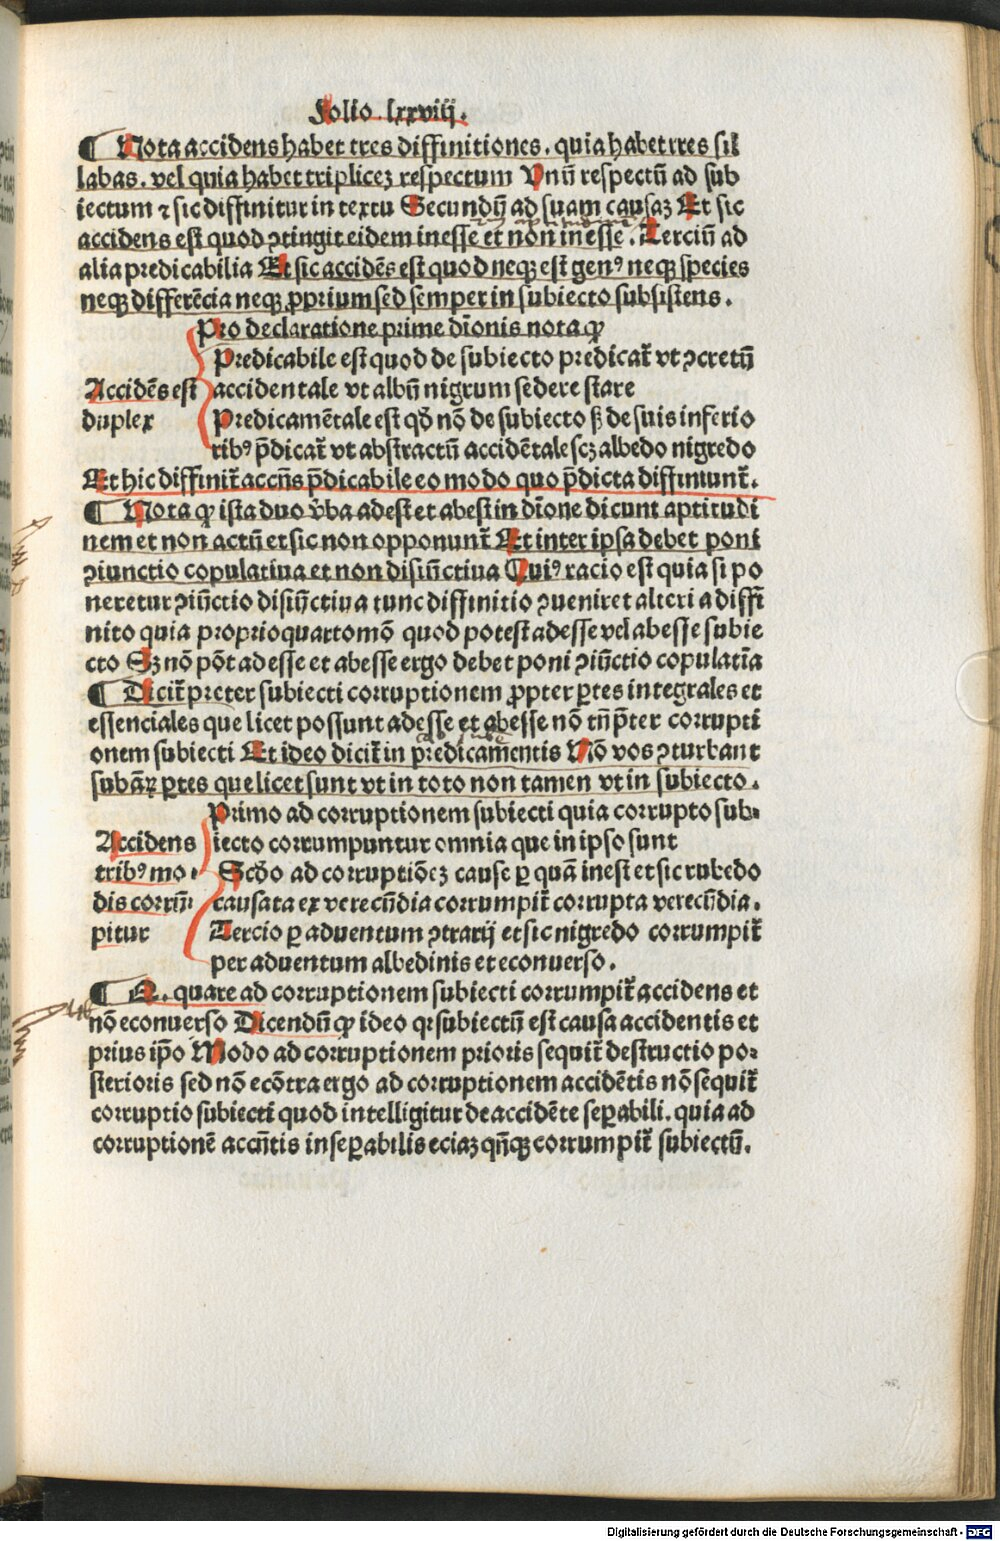 Folio. lxxviij.
¶ Nota accidens habet tres diffinitiones. quia habet tres sil
labas. vel quia habet triplicez respectum Vnū respectū ad sub
iectum ⁊ sic diffinitur in textu Secundū ad suam causaz Et sic
accidens est quod ꝯtingit eidem inesse et non inesse. Terciū ad
alia predicabilia Et sic accidēs est quod neqꝫ est genꝰ neqꝫ species
neqꝫ differēcia neqꝫ ꝓprium sed semper in subiecto subsistens.
Pro declaratione prime dīonis nota ꝙ
Predicabile est quod de subiecto predicat̄ vt ꝯcretū
Accidēs est accidentale vt albū nigrum sedere stare
duplex Predicamētale est qd̄ nō de subiecto sꝫ de suis inferio
ribꝰ p̄dicat̄ vt abstractū accidētale scꝫ albedo nigredo
Et hic diffinit̄ accn̄s p̄dicabile eo modo quo p̄dicta diffiniunt̄.
¶ Nota ꝙ ista duo v̄ba adest et abest in dīone dicunt aptitudi
nem et non actū et sic non opponunt̄ Et inter ipsa debet poni
ꝯiunctio copulatiua et non disiūctiua Cuiꝰ racio est quia si po
neretur ꝯiūctio disiūctiua tunc diffinitio ꝯueniret alteri a diffi
nito quia proprio quarto mō quod potest adesse vel abesse subie
cto Sꝫ nō pōt adesse et abesse ergo debet poni ꝯiūctio copulatīa
¶ Dicit̄ preter subiecti corruptionem ꝓpter ꝑtes integrales et
essenciales que licet possunt adesse et abesse nō tn̄ p̄ter corrupti
onem subiecti Et ideo dicit̄ in predicamentis Nō vos ꝯturbant
subāꝝ ꝑtes que licet sunt vt in toto non tamen vt in subiecto.
Primo ad corruptionem subiecti quia corrupto sub-
Accidens iecto corrumpuntur omnia que in ipso sunt
tribꝰ mo- Scd̄o ad corruptiōeꝫ cause ꝑ quā inest et sic rubedo
dis corrū- causata ex verecūdia corrumpit̄ corrupta verecūdia.
pitur Tercio ꝑ aduentum ꝯtrarij et sic nigredo corrumpit̄
per aduentum albedinis et econuerso.
¶ Q. quare ad corruptionem subiecti corrumpit̄ accidens et
nō econuerso Dicendū ꝙ ideo qꝛ subiectū est causa accidentis et
prius ip̄o Modo ad corruptionem prioris sequit̄ destructio po-
sterioris sed nō ecōtra ergo ad corruptionem accidētis nō sequit̄
corruptio subiecti quod intelligitur de accidēte seꝑabili. quia ad
corruptionē accn̄tis inseꝑabilis eciaꝫ qn̄qꝫ corrumpit̄ subiectū.
Digitalisierung gefördert durch die Deutsche Forschungsgemeinschaft - DFG